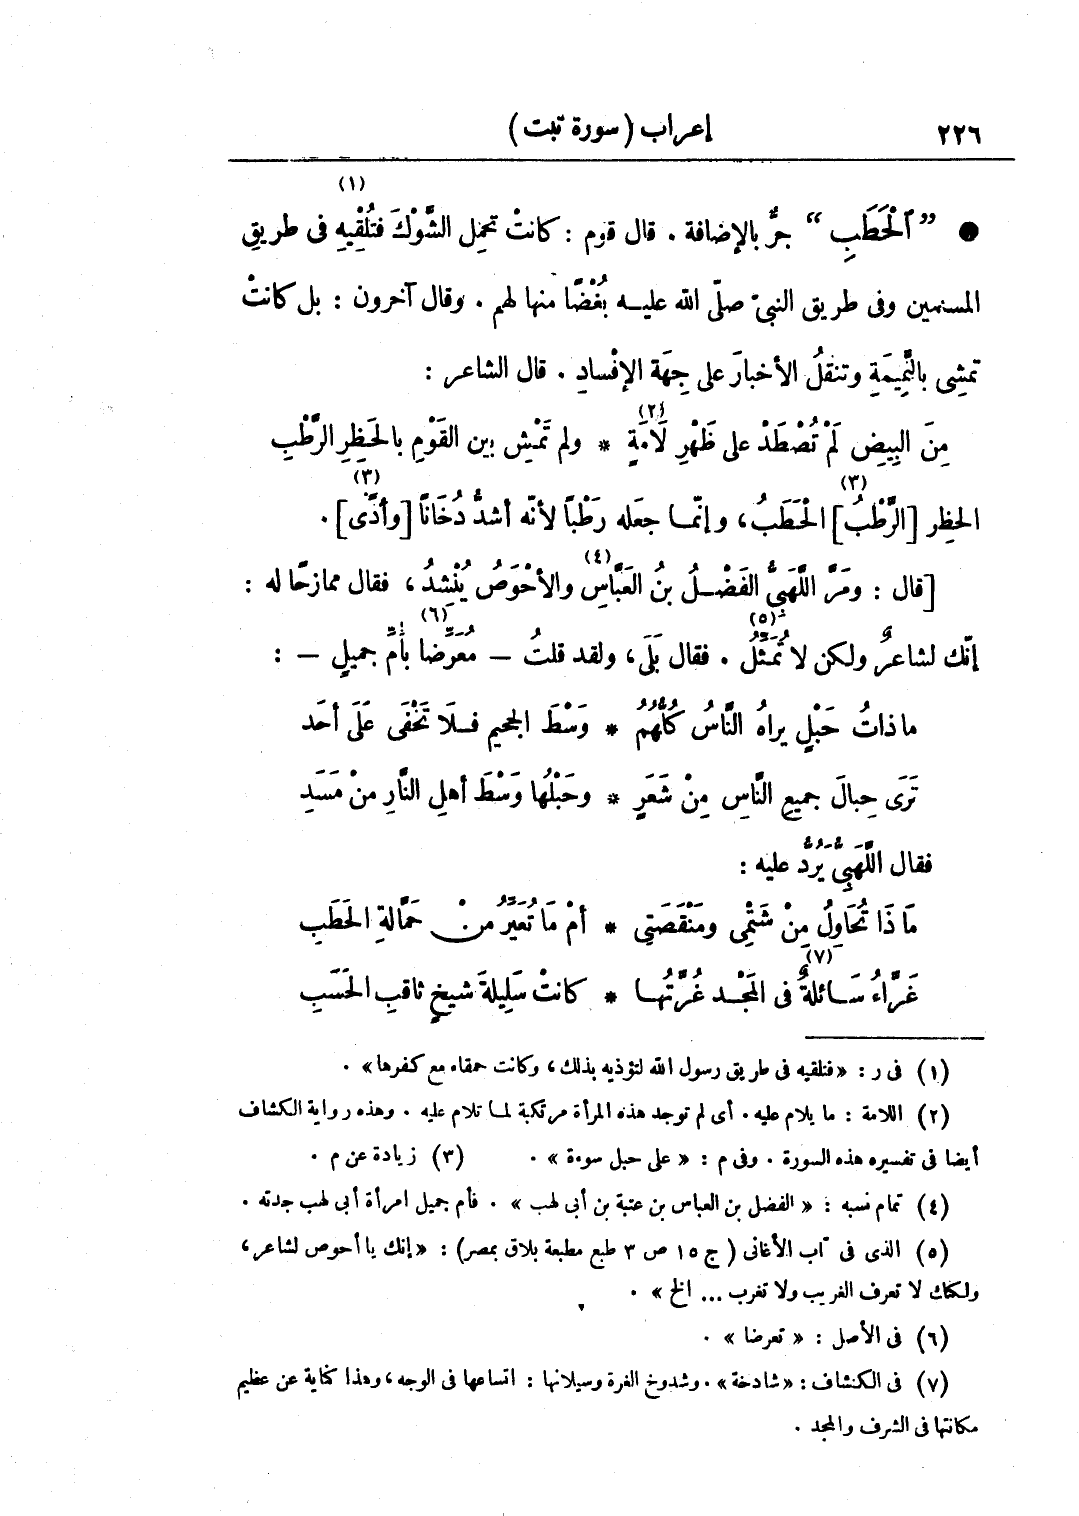 ٢٢٦ إعراب (سورة تبت)
(١)
● ” ٱلْحَطَبِ “ جرٌّ بالإضافة . قال قوم : كانتْ تحمِل الشَّوْكَ فتُلْقِيهِ فى طريقِ
المسلمين وفى طريق النبىّ صلّى الله عليــه بُغْضًا منها لهم . وقال آخرون : بل كانتْ
تمشِى بالنَّمِيمَةِ وتنقلُ الأخبارَ على جِهَة الإفْسادِ . قال الشاعر :
(٢)
مِنَ البِيضِ لَمْ تُصْطَدْ على ظَهْرِ لَامَةٍ * ولم تَمْشِ بين القَوْمِ بالحَظِرِ الرَّطْبِ
(٣) (٣)
الحظِر [الرَّطْبُ] الْحَطَبُ، وإنّمــا جعَله رَطْبًا لأنّه أشدُّ دُخَانًا [وأذًى] .
(٤)
[قال : ومَرَّ اللَّهَبِىُّ الفَضْــلُ بنُ العَبَّاسِ والأحْوَصُ يُنْشِدُ، فقال ممازحًا له :
(٥) (٦)
إنّك لشاعرٌ ولكن لا تُمَثِّلُ . فقال بَلَى، ولقد قلتُ — مُعَرِّضًا بأمِّ جميلٍ — :
ما ذاتُ حَبْلٍ يراهُ النَّاسُ كُلُّهُمُ * وَسْطَ الجحيم فــلَا تَخْفَى عَلَى أحَد
تَرَى حِبالَ جميعِ النَّاسِ مِنْ شَعَرٍ * وحَبْلُها وَسْطَ أهلِ النَّارِ منْ مَسَدِ
فقال اللَّهَبِىُّ يَرُدُّ عليه :
مَا ذَا تُحَاوِلُ مِنْ شَتْمِى ومَنْقَصَتِى * أمْ مَا تُعَيِّرُ منْ حَمَّالةِ الحَطَبِ
(٧)
غَرَّاءُ سَــائلةٌ فى المَجْــد غُرَّتُهــا * كانتْ سَلِيلةَ شيخٍ ثاقبِ الحَسَبِ
(١) فى ر : «فتلقيه فى طريق رسول الله لتؤذيه بذلك، وكانت حمقاء مع كفرها» .
(٢) اللامة : ما يلام عليه. أى لم توجد هذه المرأة مرتكبة لمــا تلام عليه . وهذه رواية الكشاف
أيضا فى تفسيره هذه السورة . وفى م : «على حبل سوءة» . (٣) زيادة عن م .
(٤) تمام نسبه : «الفضل بن العباس بن عتبة بن أبى لهب» . فأم جميل امرأة أبى لهب جدته .
(٥) الذى فى كتاب الأغانى (ج ١٥ ص ٣ طبع مطبعة بلاق بمصر) : «إنك يا أحوص لشاعر،
ولكنك لا تعرف الغريب ولا تغرب ... الخ» .
(٦) فى الأصل : «تعرضا» .
(٧) فى الكشاف : «شادخة» . وشدوخ الغرة وسيلانها : اتساعها فى الوجه، وهذا كناية عن عظيم
مكانتها فى الشرف والمجد .